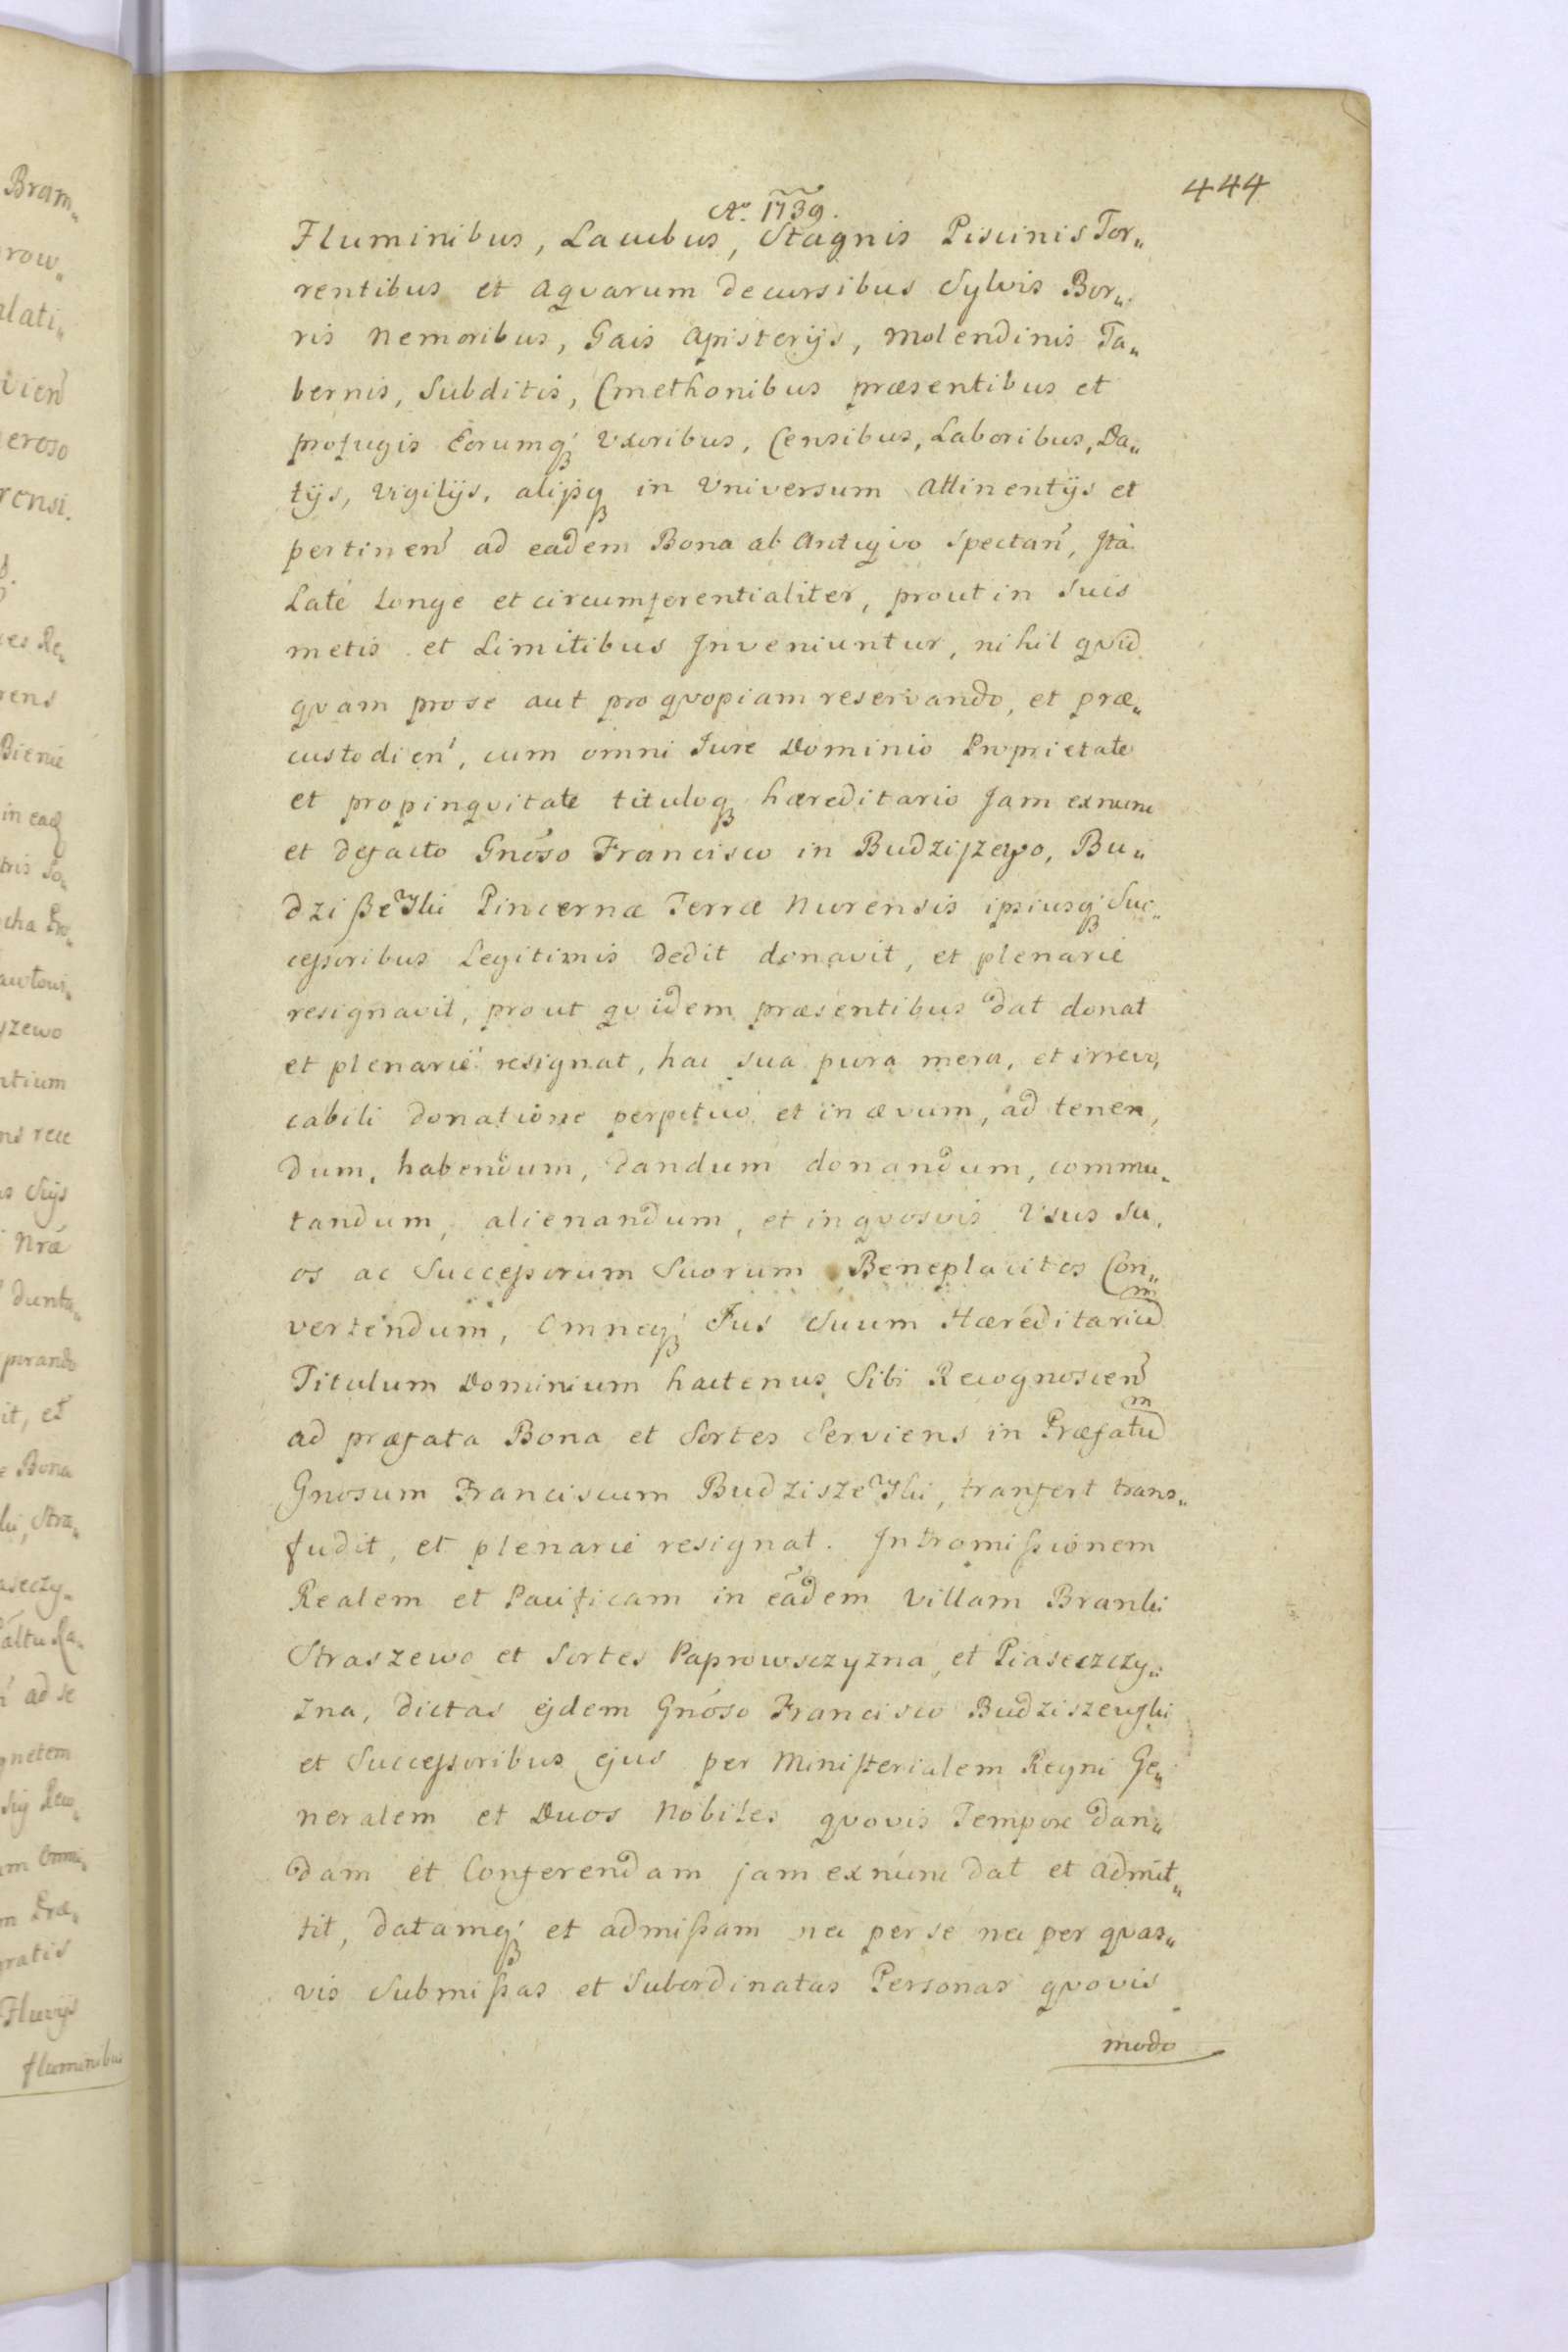 444
Aō 1739.
Fluminibus, Lacubus, Stagnis Piscinis Tor„
rentibus et aqvarum decursibus Sylvis Bor„
ris nemoribus, Gais apisterijs, molendinis Ta„
bernis, Subditis, Cmethonibus præsentibus et
profugis Eorumq́ß Uxoribus, Censibus, Laboribus, Da„
tijs, Vigilijs, alijsqß in Universum attinentijs et
pertinen̄ ad eadem Bona ab Antiqvo Spectan̄, Jtà
Latè Longe et circumferentialiter, prout in Suis
metis et Limitibus Jnveniuntur, nihil qvid
qvam pro se aut pro qvopiam reservando, et præ„
custodien̄, cum omni Jure Dominio Proprietate
et propinqvitate tituloqß hæreditario Jam exnunc
et defacto Gnōso Francisco in Budziszewo, Bu„
dzißewski Pincernæ Terræ Nurensis ipsiusq́ß Suc„
cessoribus Legitimis dedit donavit, et plenarie
resignavit, prout qvidem præsentibus dat donat
et plenarie resignat, hac sua pura mera, et irrevo„
cabili donatione perpetuo et in ævum, ad tenen„
dum, habendum, dandum donandum, commu„
tandum, alienandum, et in qvosvis Usus Su„
os ac Successorum Suorum Beneplacitos Con„
vertendum, Omneq́ß Jus Suum Hæreditariū
Titulum Dominium hactenus Sibi Recognoscen̄
ad præfata Bona et Sortes Serviens in Præfatū
Gnosum Franciscum Budziszewski, tranfert trans„
fudit, et plenarie resignat. Jntromißionem
Realem et Pacificam in eādem Villam Branki
Straszewo et Sortes Paprowsczyzna, et Piaseczczy„
zna, dictas ejdem Gnōso Francisco Budziszewski
et Successoribus ejus per Ministerialem Regni Ge„
neralem et Duos Nobiles qvovis Tempore dan„
dam et Conferendam jam exnunc dat et admit„
tit, datamq́ß et admißam nec per se nec per qvas„
vis Submißas et Subordinatas Personas qvovis
modo